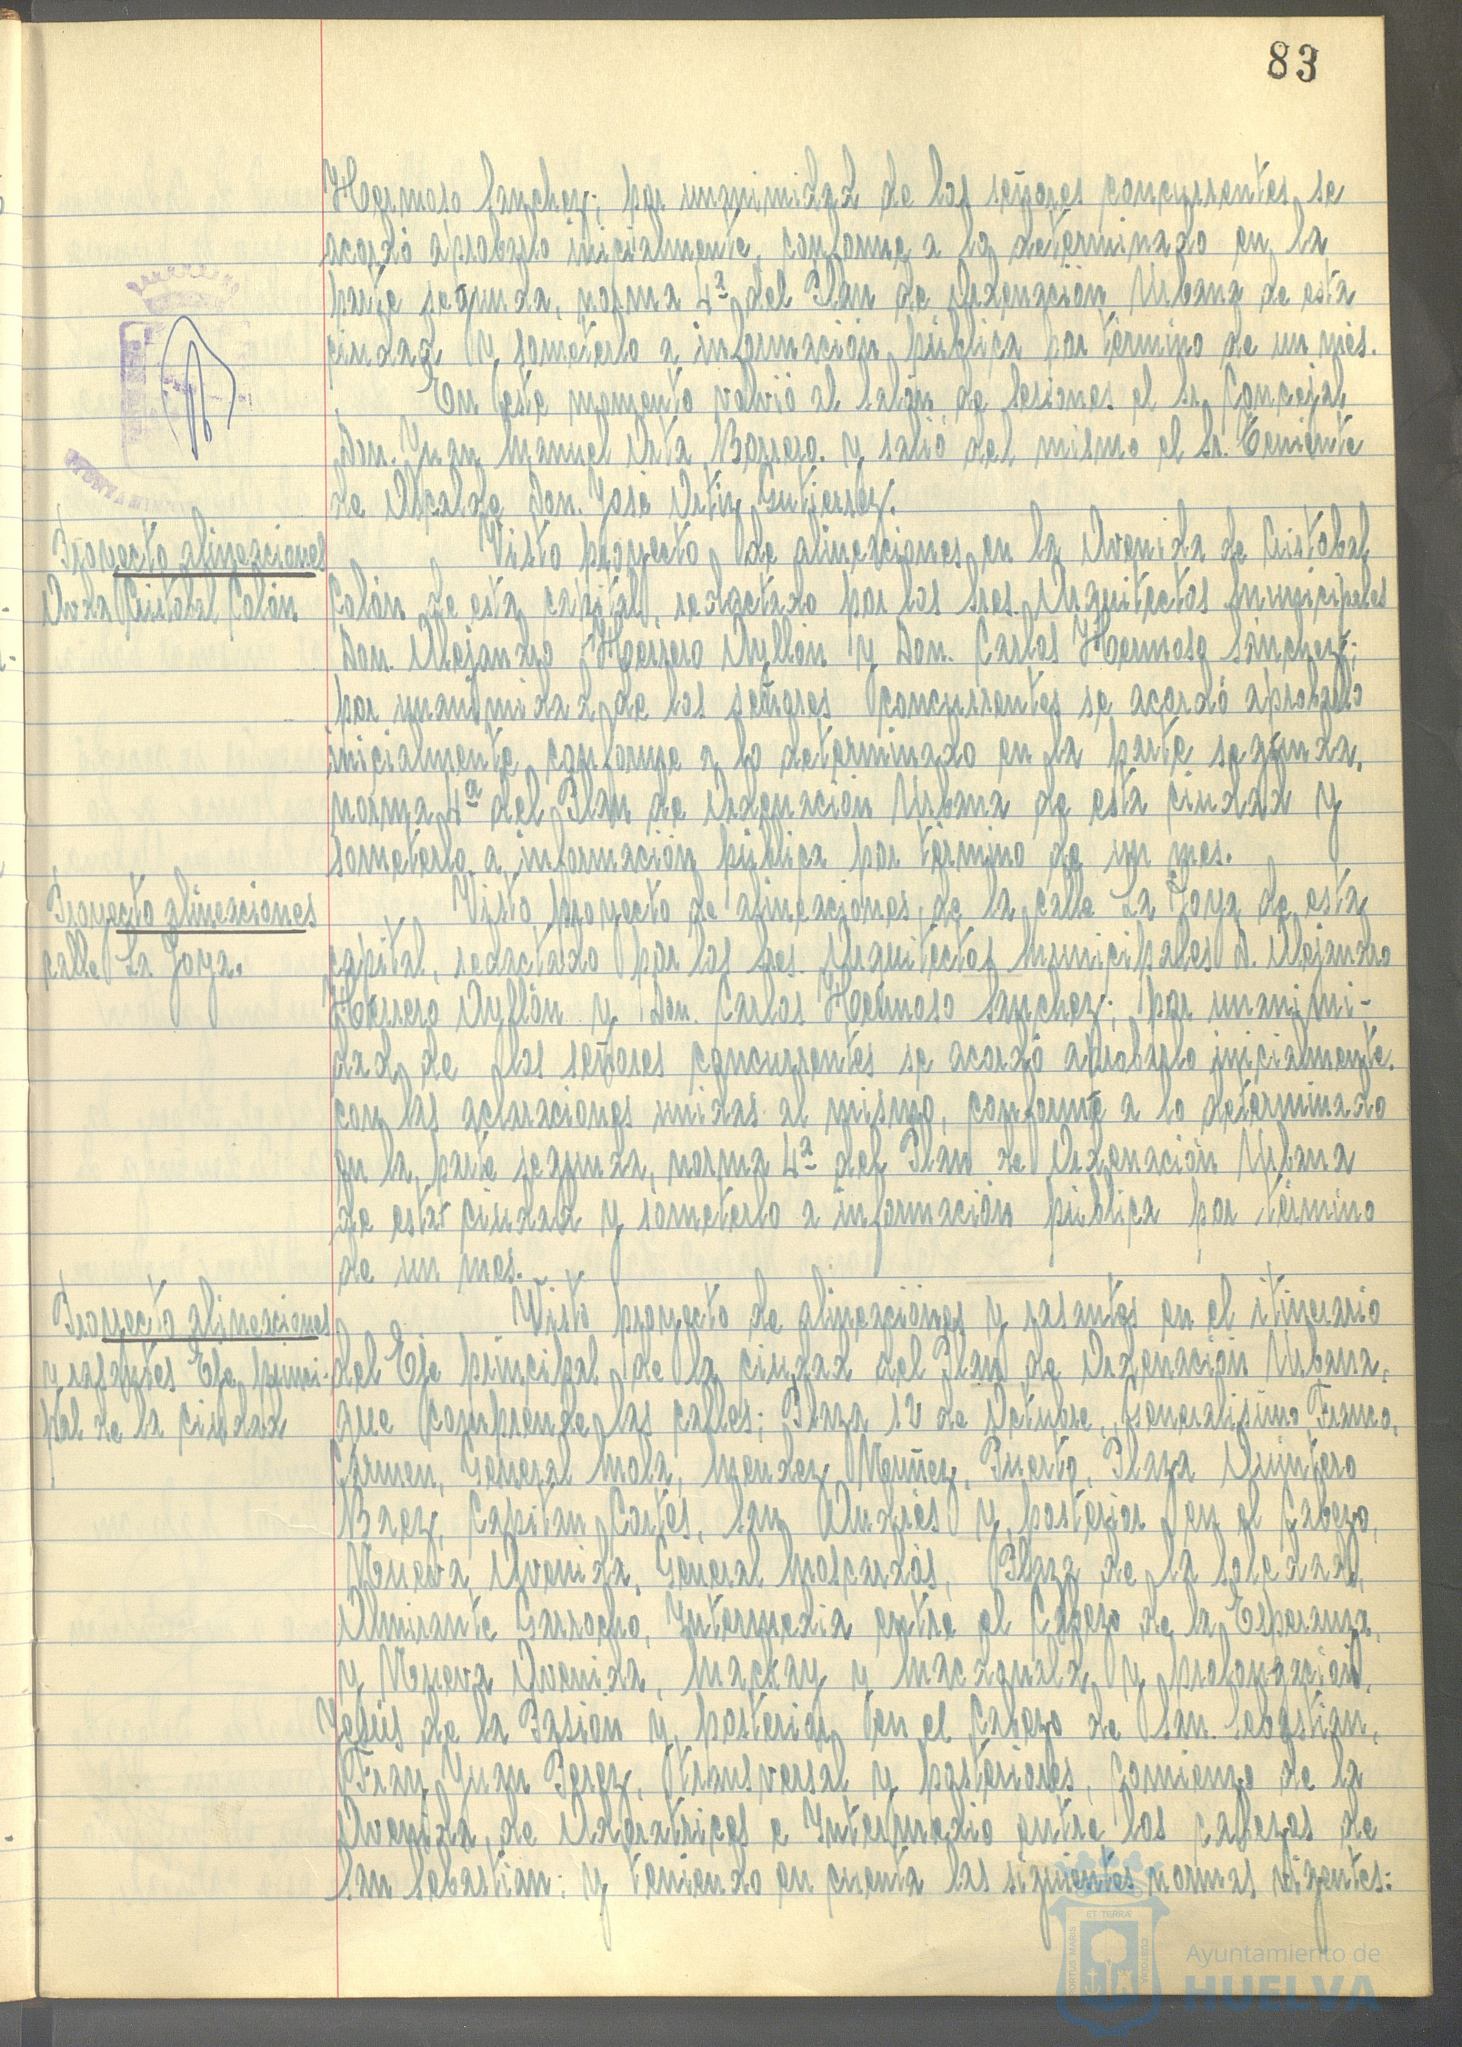 83
Hermoso Sanchez; por unanimidad de los señores concurrentes se
acordó aprobarlo inicialmente, conforme a lo determinado en la
parte segunda, norma 4ª del Plan de Ordenación Urbana de esta
ciudad y someterlo a información pública por término de un mes.
En este momento volvió al salón de sesiones el Sr. Concejal
Don. Juan Manuel Orta Borrero. y salió del mismo el Sr. Teniente
de Alcalde Don. José Ortiz Gutierrez.
Proyecto alineaciones
Avda Cristobal Colón.
Visto proyecto de alineaciones en la Avenida de Cristobal
Colón de esta capital, redactado por los Sres. Arquitectos Municipales
Don. Alejandro Herrero Ayllón y Don. Carlos Hermoso Sánchez;
por unanimidad de los señores concurrentes se acordó aprobarlo
inicialmente conforme a lo determinado en la parte segunda,
norma 4ª del Plan de Ordenación Urbana de esta ciudad y
someterlo a información pública por término de un mes.
Proyecto alineaciones
calle La Joya.
Visto proyecto de alineaciones, de la calle La Joya de esta
capital, redactado por los Sres. Arquitectos Municipales D. Alejandro
Herrero Ayllón y Don. Carlos Hermoso Sanchez; por unanimi-
dad de los señores concurrentes se acordó aprobarlo inicialmente.
con las aclaraciones unidas al mismo, conforme a lo determinado
en la parte segunda, norma 4ª del Plan de Ordenación Urbana
de esta ciudad y someterlo a información pública por término
de un mes.
Proyecto alineaciones
y rasantes Eje princi-
pal de la ciudad
Visto proyecto de alineaciones y rasantes en el itinerario
del Eje principal de la ciudad del Plan de Ordenación Urbana,
que comprende las calles; Plaza 12 de Octubre, Generalisimo Franco,
Carmen, General Mola, Mendez Nuñez, Puerto, Plaza Quintero
Baez, Capitan Cortés, San Andrés y posterior en el Cabezo,
Nueva Avenida, General Moscardós, Plaza de la Soledad,
Almirante Garrocho, Intermedia entre el Cabezo de la Esperanza,
y Nueva Avenida, Mackay y Macdonald y prolongación,
Jesús de la Pasión y posterior en el Cabezo de San. Sebastian,
Fray Juan Perez, transversal y posteriores, Comienzo de la
Avenida, de Adoratrices e Intermedio entre los cabezos de
San Sebastian: y teniendo en cuenta las siguientes normas vigentes:
ET TERRÆ
PORTUS MARIS
CUSTODIA
Ayuntamiento de
HUELVA